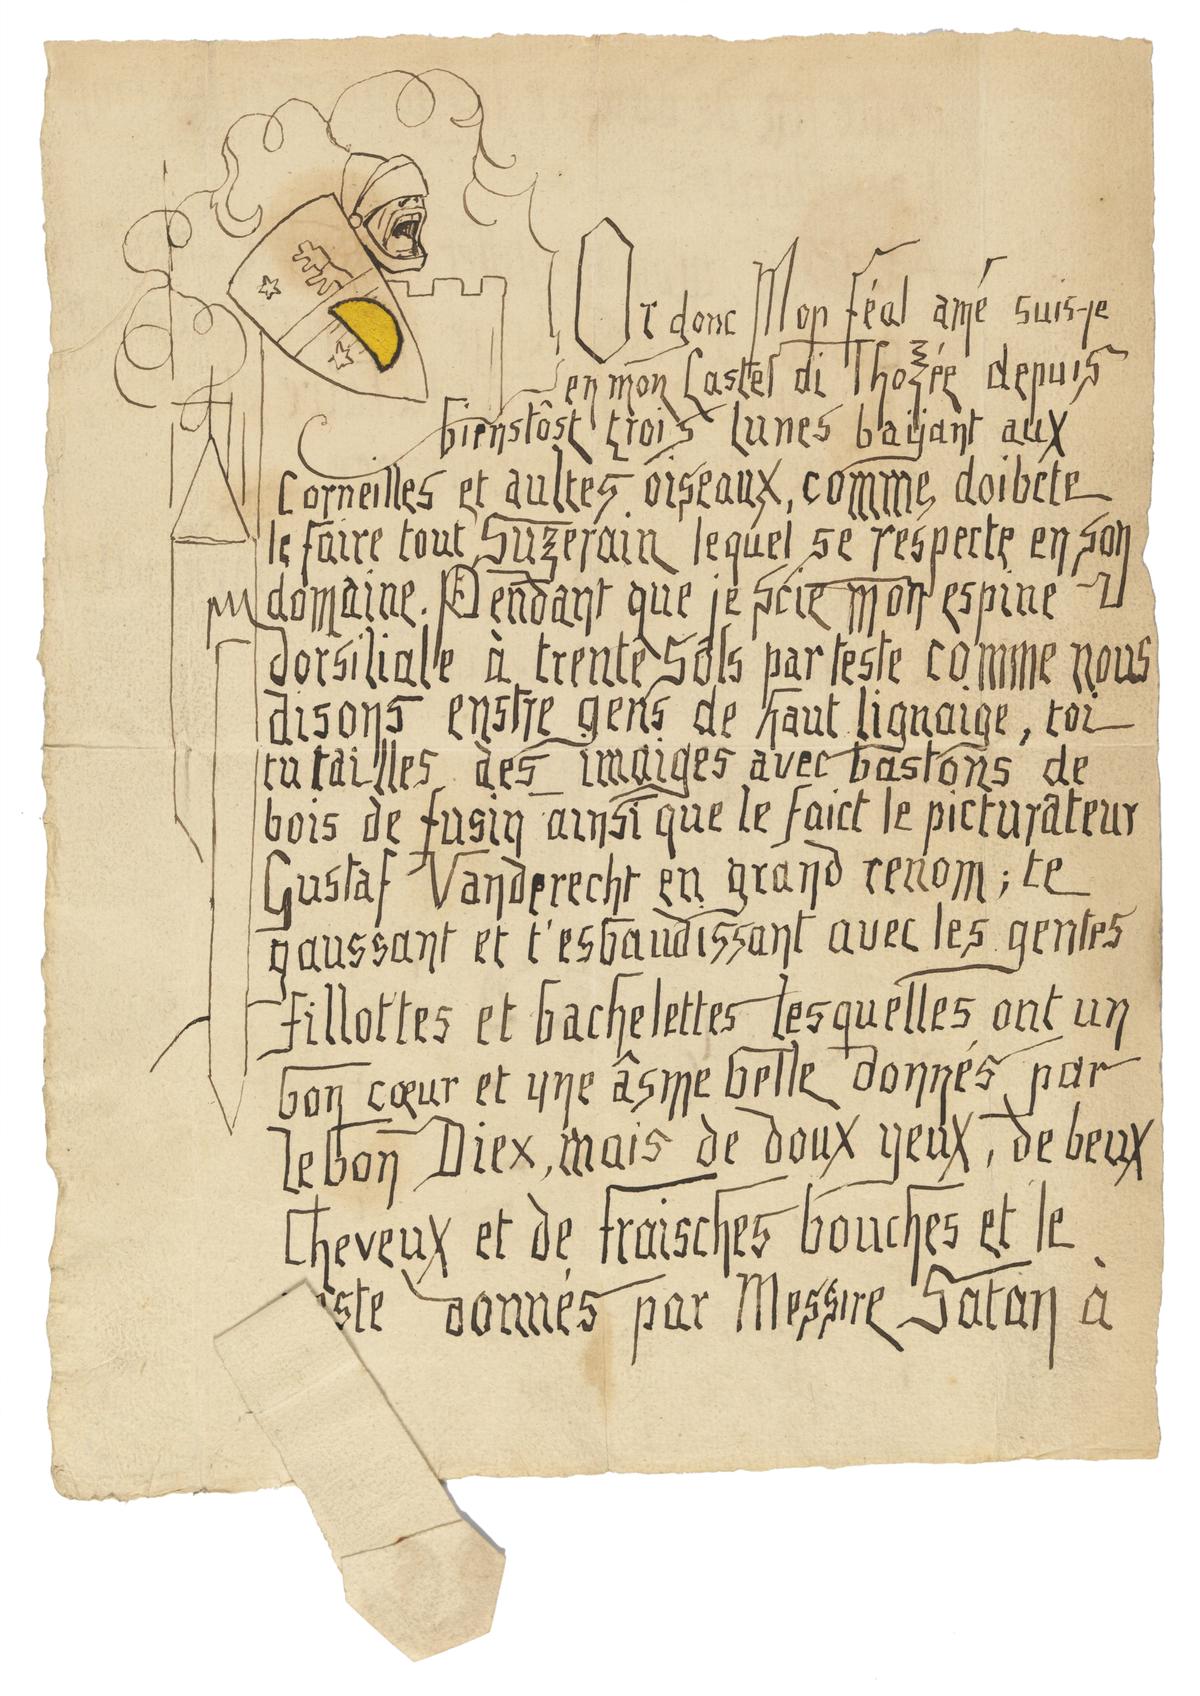 Or donc Mon féal amé suis-je
en mon Castel di Thozée depuis
bienstôst trois lunes bayant aux
Corneilles et aultes oiseaux, comme doibcte
le faire tout Suzerain lequel se respecte en son
domaine. Pendant que je scie mon espine
dorsiliale à trente Sols par teste comme nous
disons enstre gens de haut lignaige, toi
tu tailles des imaiges avec bastons de
bois de fusin ainsi que le faict le picturateur
Gustaf Vanderecht en grand renom ; te
gaussant et t'esbaudissant avec les gentes
fillottes et bachelettes lesquelles ont un
bon cœur et une âsme belle donnés par
le bon Diex, mais de doux yeux, de beux
Cheveux et de fraisches bouches et le
donnés par Messire Satan à